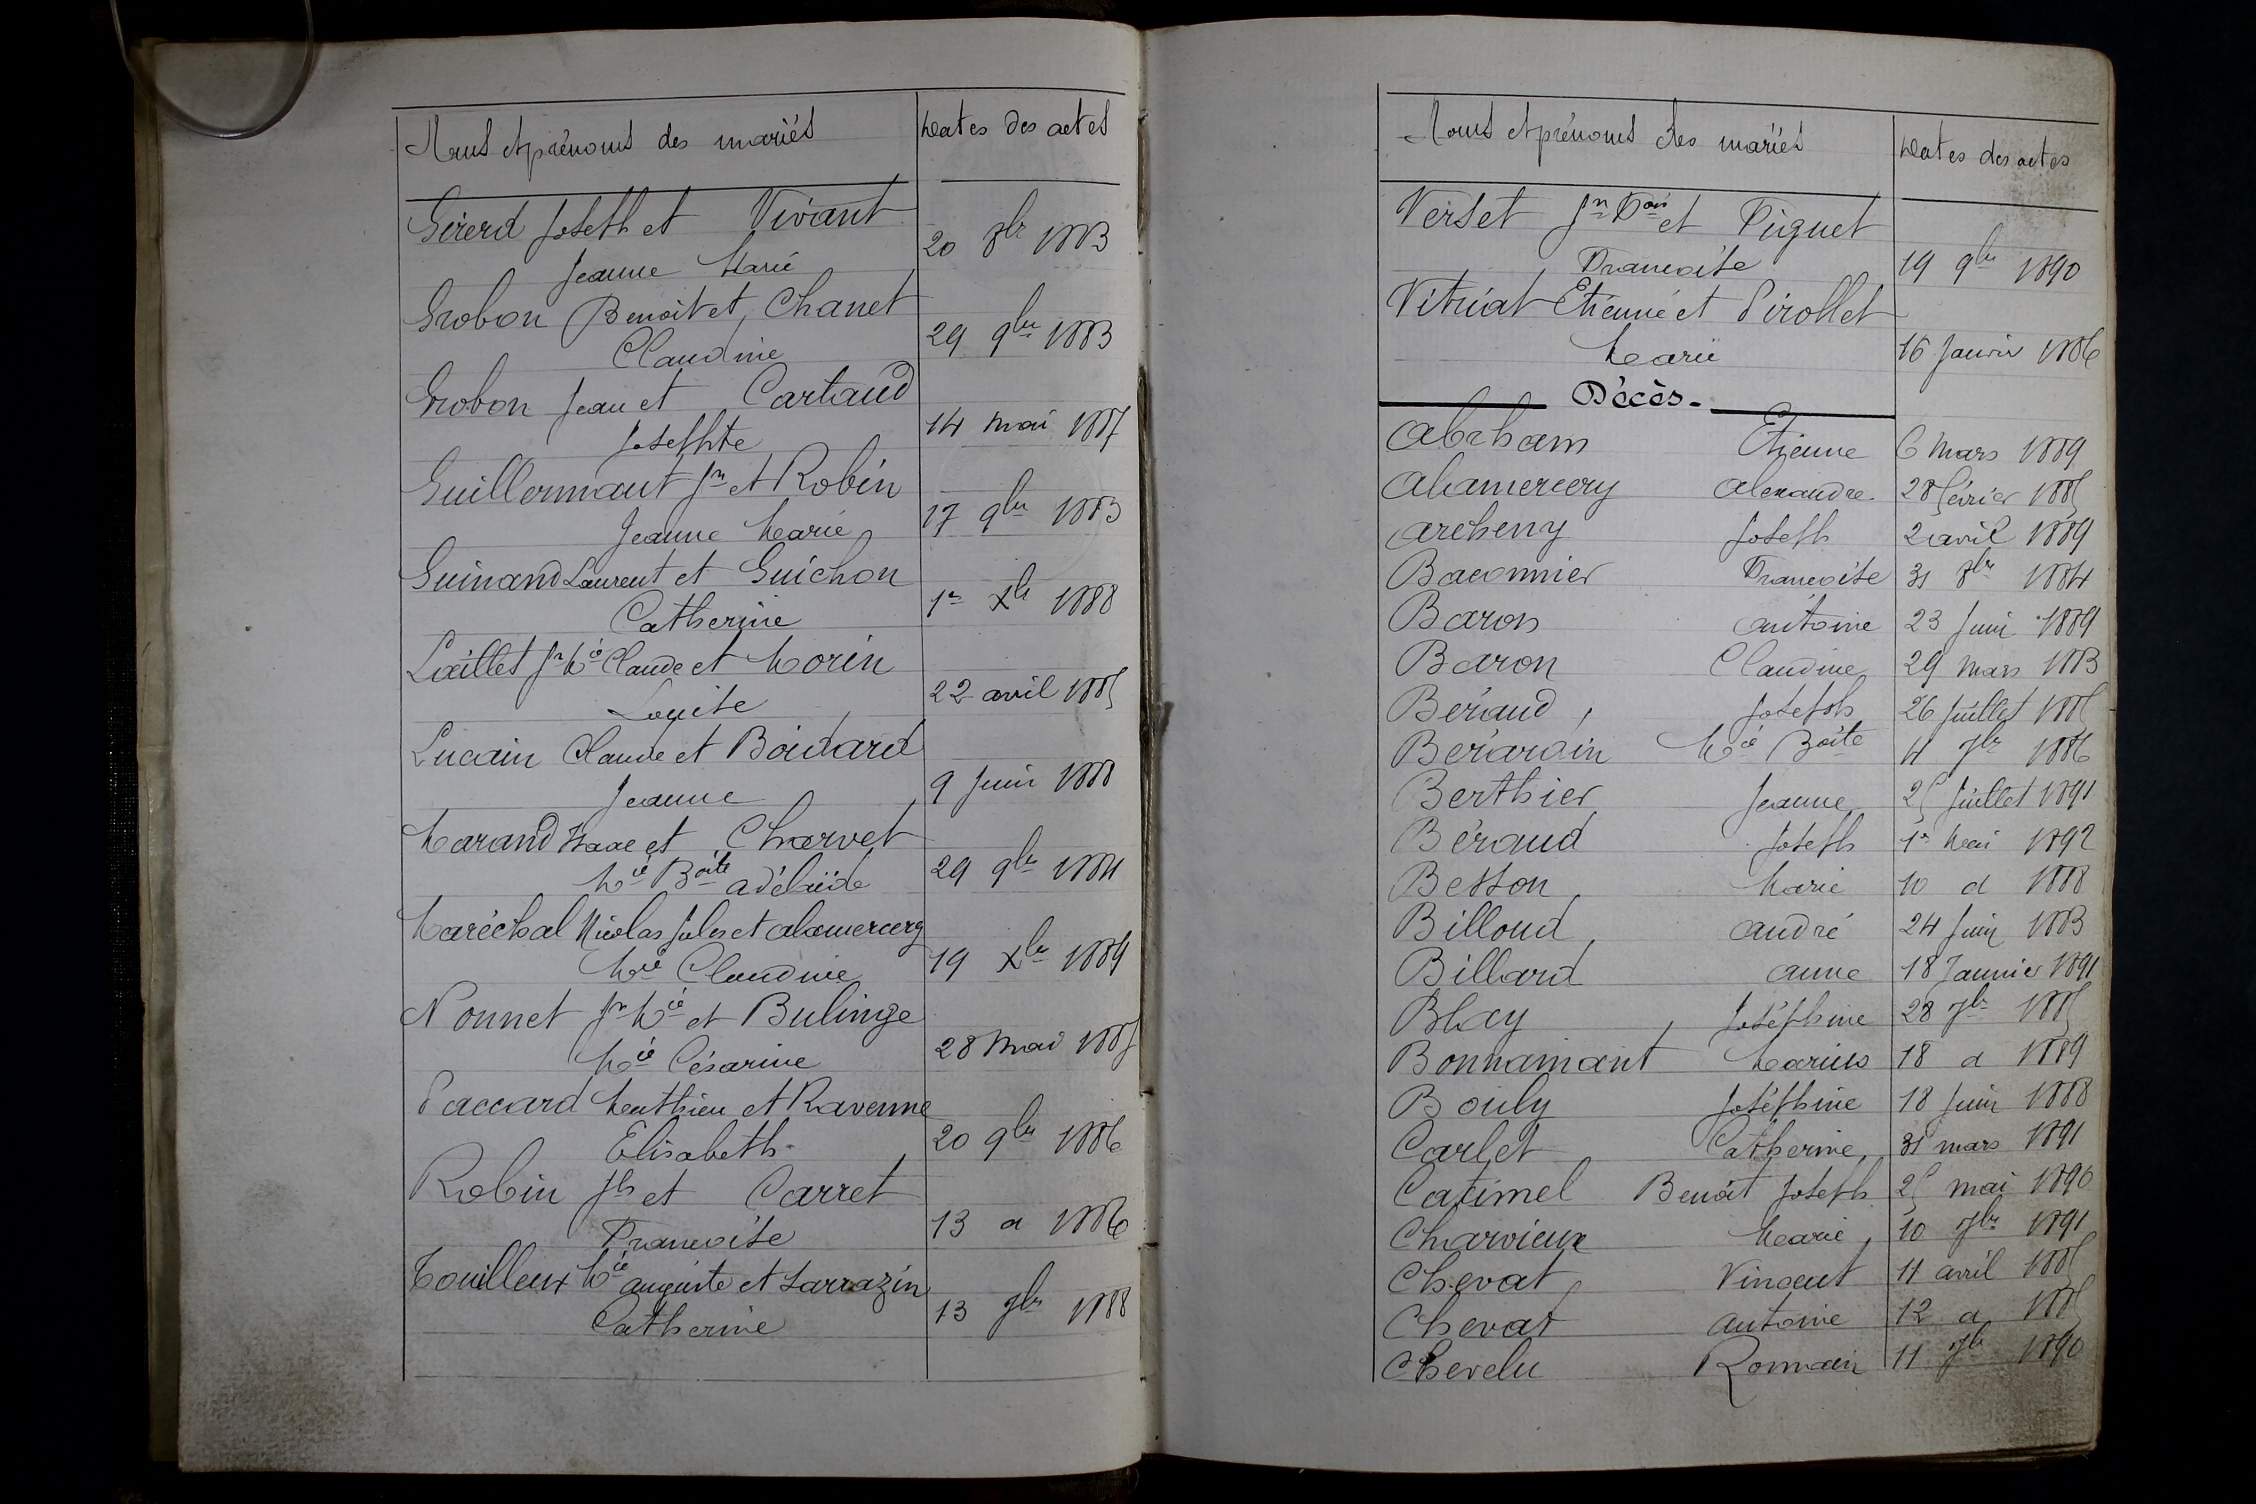 Noms et prénoms des mariés
Dates des actes
Girerd Joseph et Vivant
Jeanne Marie
20 8bre 1883
Grobon Benoit et Chanet
Claudine
29 9bre 1883
Grobon Jean et Cartaud
Josephte
14 mai 1887
Guillermaut Jn et Robin
Jeanne Marie
17 9bre 1883
Guinand Laurent et Guichon
Catherine
1er Xbre 1888
Laillet Jn Mie Claude et Morin
Louise
22 avril 1885
Lucain Claude et Boidard
Jeanne
9 Juin 1888
Marand Isaac et Charvet
Mie Boite adélaïde
29 9bre 1884
Maréchal Nicolas Jules et alamercery
Mie Claudine
19 Xbre 1889
Nonnet Jn Mie et Bulinge
Mie Césarine
28 Mai 1885
Paccard Mathieu et Ravenne
Elisabeth
20 9bre 1886
Robin Jh et Carret
Francoise
13 d 1886
Touilleux Mie auguste et Sarrazin
Catherine
13 9bre 1888
Noms et prénoms des mariés
Dates des actes
Verset Jn Fois et Piguet
Francoise
19 9bre 1890
Vitriat Etienne et Pirollet
Marie
16 Janvier 1886
Décès
abraham Etienne 6 Mars 1889
alamercery alexandre 28 février 1885
archeny Joseph 2 avril 1889
Baconnier Francoise 31 8bre 1884
Baron antoine 23 Juin 1889
Baron Claudine 29 mars 1883
Beraud Joseph 26 Juillet 1885
Berardin Mie Boite 11 7bre 1886
Berthier Jeanne 25 Juillet 1891
Béraud Joseph 1er Mai 1892
Besson Marie 10 d 1888
Billoud andré 24 Juin 1883
Billard anne 18 Janvier 1891
Blay Joséphine 28 7bre 1885
Bonnamant Marius 18 d 1889
Bouly Joséphine 18 Juin 1888
Carlet Catherine 31 mars 1891
Catimel Benoit Joseph 25 mai 1890
Charvieux Marie 10 7bre 1891
Chevat Vincent 11 avril 1885
Chevat antoine 12 d 1885
Chevelu Romain 11 7bre 1890